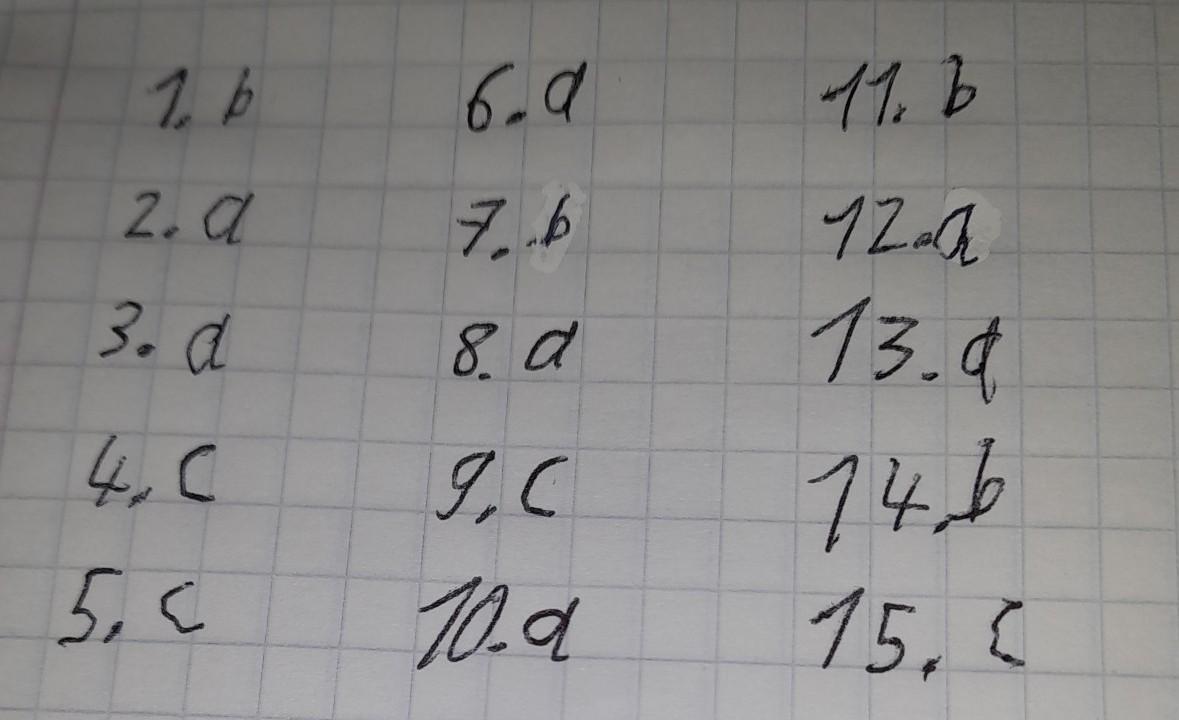 1. b 6. a 11. b
2. a 7. b 12. a
3. a 8. a 13. a
4. c 9. c 14. b
5. c 10. a 15. c